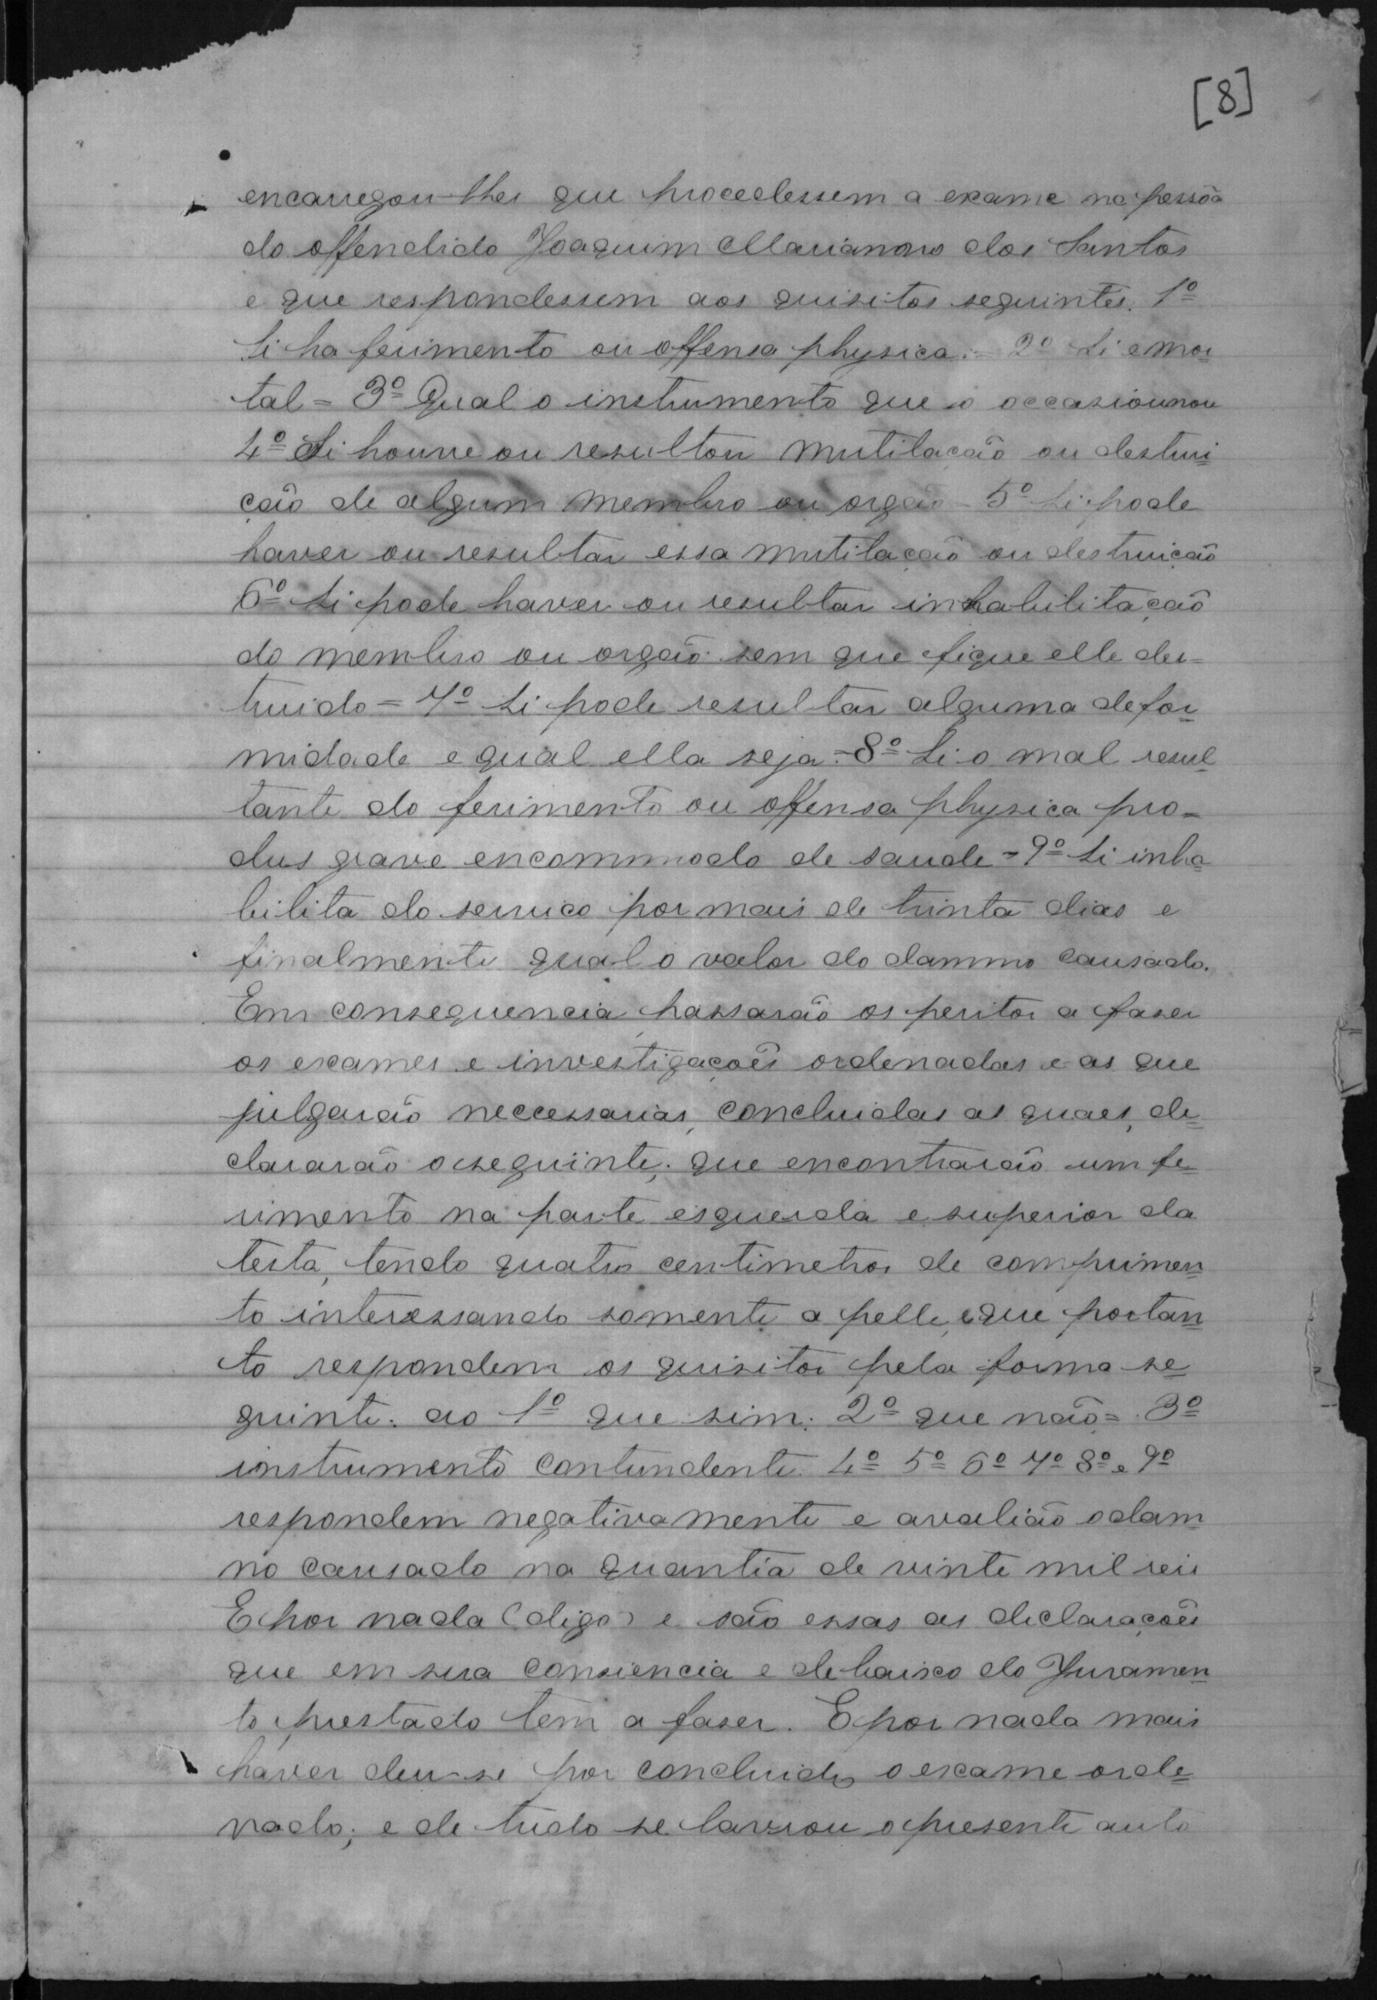 [8]
encarregou-lhes que procedessem a exame na pessôa
do offendido Joaquim Marianno dos Santos
e que respondessem aos quisitos seguintes. 1º
Si ha ferimento ou offensa physica. = 2º Si e mor
tal = 3º Qual o instrumento que o occasiounou
4º Si houve ou resultou mutilação ou destrui
ção de algum membro ou orgão - 5º Si pode
haver ou resultar essa mutilação ou destruição
6º Si pode haver ou resultar inhabilitação
do membro ou orgão sem que fique elle des=
truido = 7º Si pode resultar alguma defor
midade e qual ella seja = 8º Si o mal resul
tante do ferimento ou offensa physica pro=
dus grave encommodo de saude = 9º Si inha
bilita do serviço por mais de trinta dias e
finalmente qual o valor do dammo causado.
Em consequencia passarão os peritos a faser
os exames e investigações ordenadas e as que
julgarão neccessarias, concluidas as quaes, de
clararão o seguinte; que encontrarão um fe
rimento na parte esquerda e superior da
testa, tendo quatro centimetros de comprimen
to interessando somente a pelle, e que portan
to respondem os quisitos pela forma se
guinte. ao 1º que sim. 2º que não = 3º
instrumento contundente. 4º 5º 6º 7º 8º e 9º
respondem negativamente e avalião o dam
no causado na quantia de vinte mil reis
E por nada (digo) e são essas as declarações
que em sua consiencia e debaixo do Juramen
to prestado tem a faser. E por nada mais
haver deu-se por concluido o exame orde
nado; e de tudo se lavrou o presente auto